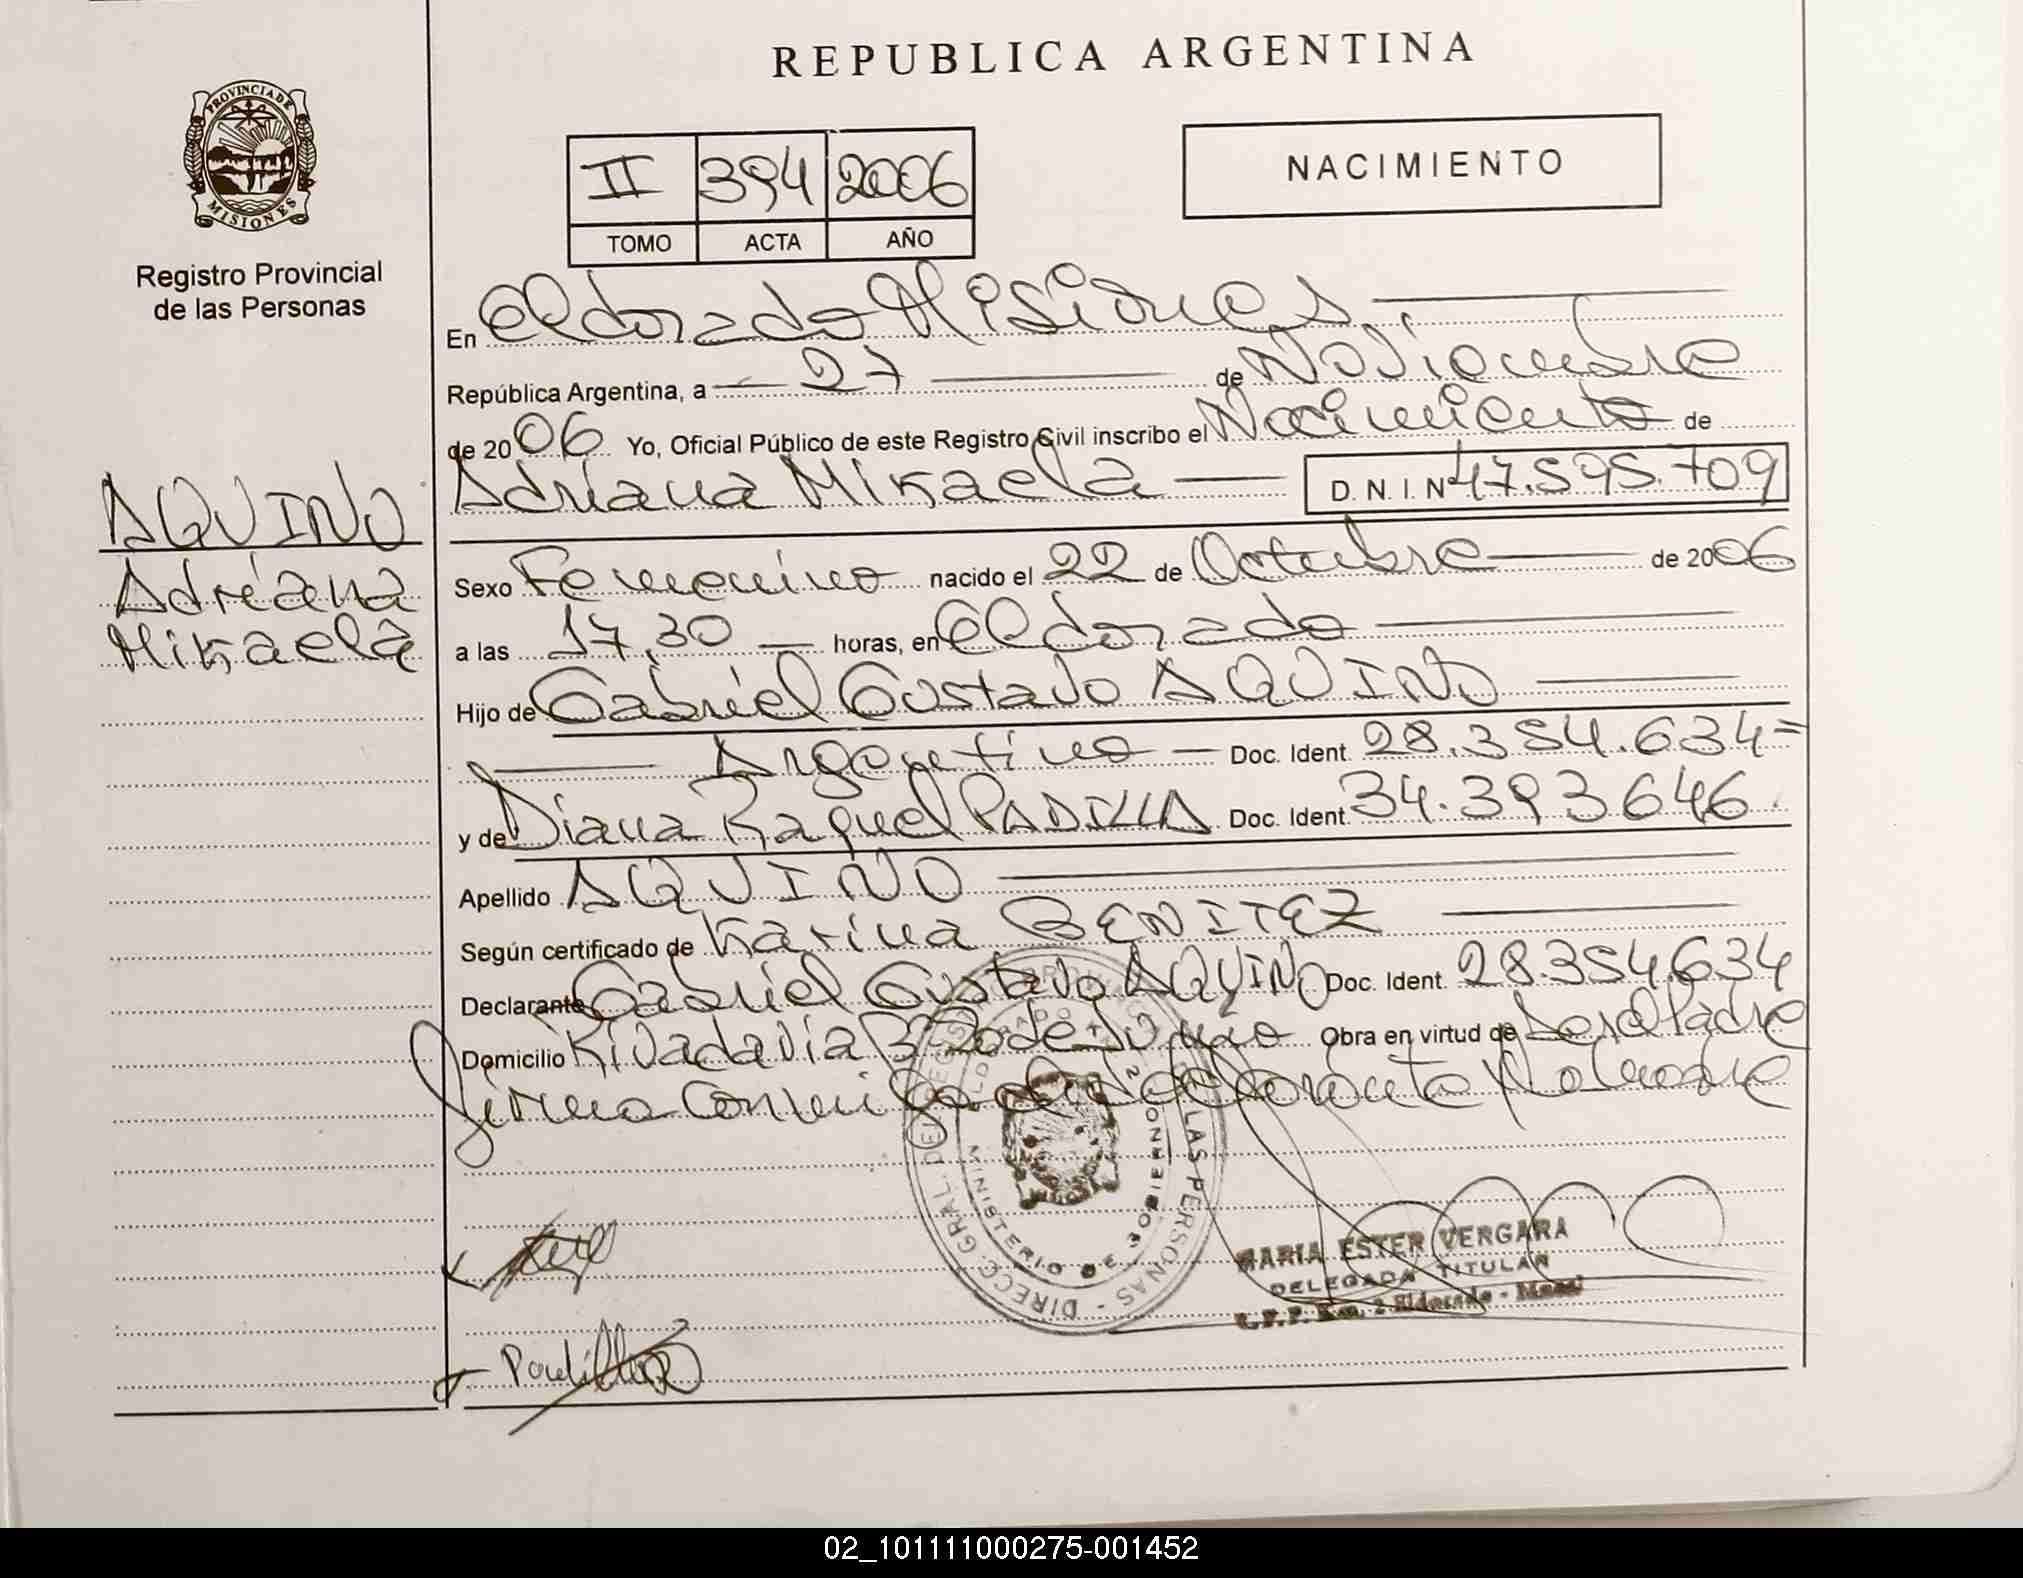 REPUBLICA ARGENTINA
PROVINCIA DE MISIONES
Registro Provincial
de las Personas
II 394 2006
TOMO ACTA AÑO
NACIMIENTO
En Eldorado Misiones
República Argentina, a 27 de Noviembre
de 2006 Yo, Oficial Público de este Registro Civil inscribo el Nacimiento de
Adriana Mikaela D.N.I. Nº 47.595.709
AQUINO
Adriana
Mikaela
Sexo Femenino nacido el 22 de Octubre de 2006
a las 17,30 horas, en Eldorado
Hijo de Gabriel Gustavo AQUINO
Argentino Doc. Ident. 28.354.634
y de Diana Raquel PADILLA Doc. Ident. 34.393.646
Apellido AQUINO
Según certificado de Karina BENITEZ
Declarante Gabriel Gustavo AQUINO Doc. Ident. 28.354.634
Domicilio Rivadavia Obra en virtud de ser el Padre
firma conmigo el declarante y la madre
DIRECC. GRAL. DEL REGISTRO LAS PERSONAS
MINISTERIO DE GOBIERNO
MARIA ESTER VERGARA
DELEGADA TITULAR
Km. 2 Eldorado - Mnes
Padilla
02_101111000275-001452